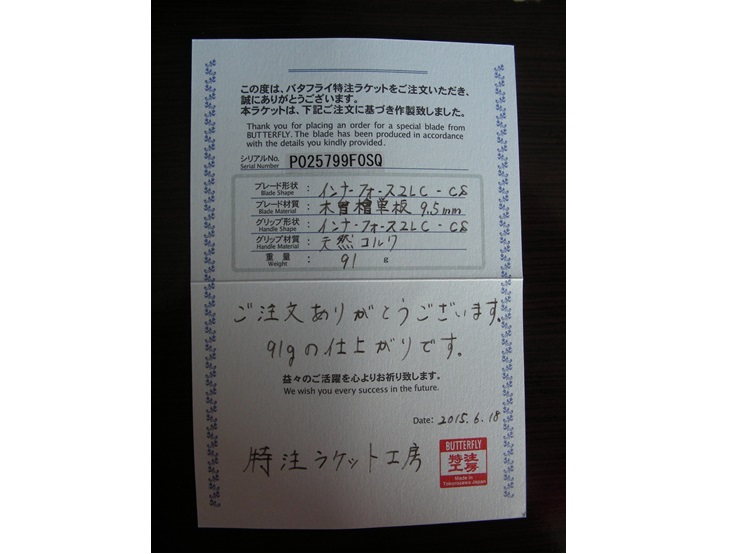 この度は、バタフライ特注ラケットをご注文いただき、
誠にありがとうございます。
本ラケットは、下記ご注文に基づき作製致しました。
Thank you for placing an order for a special blade from
BUTTERFLY. The blade has been produced in accordance
with the details you kindly provided.
シリアルNo. P025799F0SQ
Serial Number
ブレード形状 : インナーフォース2LC-CS
Blade Shape
ブレード材質 : 木曽檜単板 9.5mm
Blade Material
グリップ形状 : インナーフォース2LC-CS
Handle Shape
グリップ材質 : 天然コルク
Handle Material
重量 : 91 g
Weight
ご注文ありがとうございます。
91gの仕上がりです。
益々のご活躍を心よりお祈り致します。
We wish you every success in the future.
Date: 2015.6.18
特注ラケット工房
BUTTERFLY
特注
工房
Made in
Tokorozawa Japan